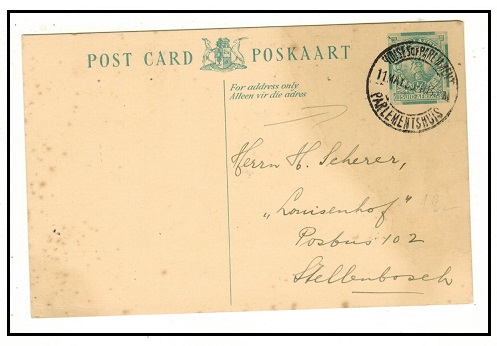 POST CARD POSKAART
For address only
Alleen vir die adres
HOUSES OF PARLIAMENT
11 MAY
PARLEMENTSHUIS
Herrn H. Scherer,
„Louisenhof"
Posbus 102
Stellenbosch